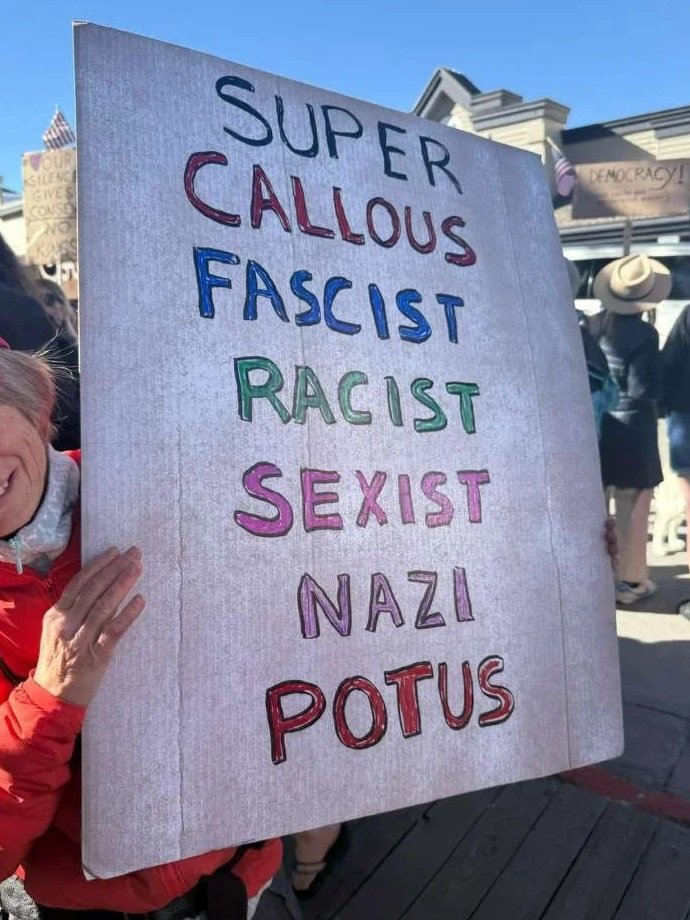 SUPER
CALLOUS
FASCIST
RACIST
SEXIST
NAZI
POTUS
OUR
SILENCE
GIVES
NO
KINGS
DEMOCRACY!